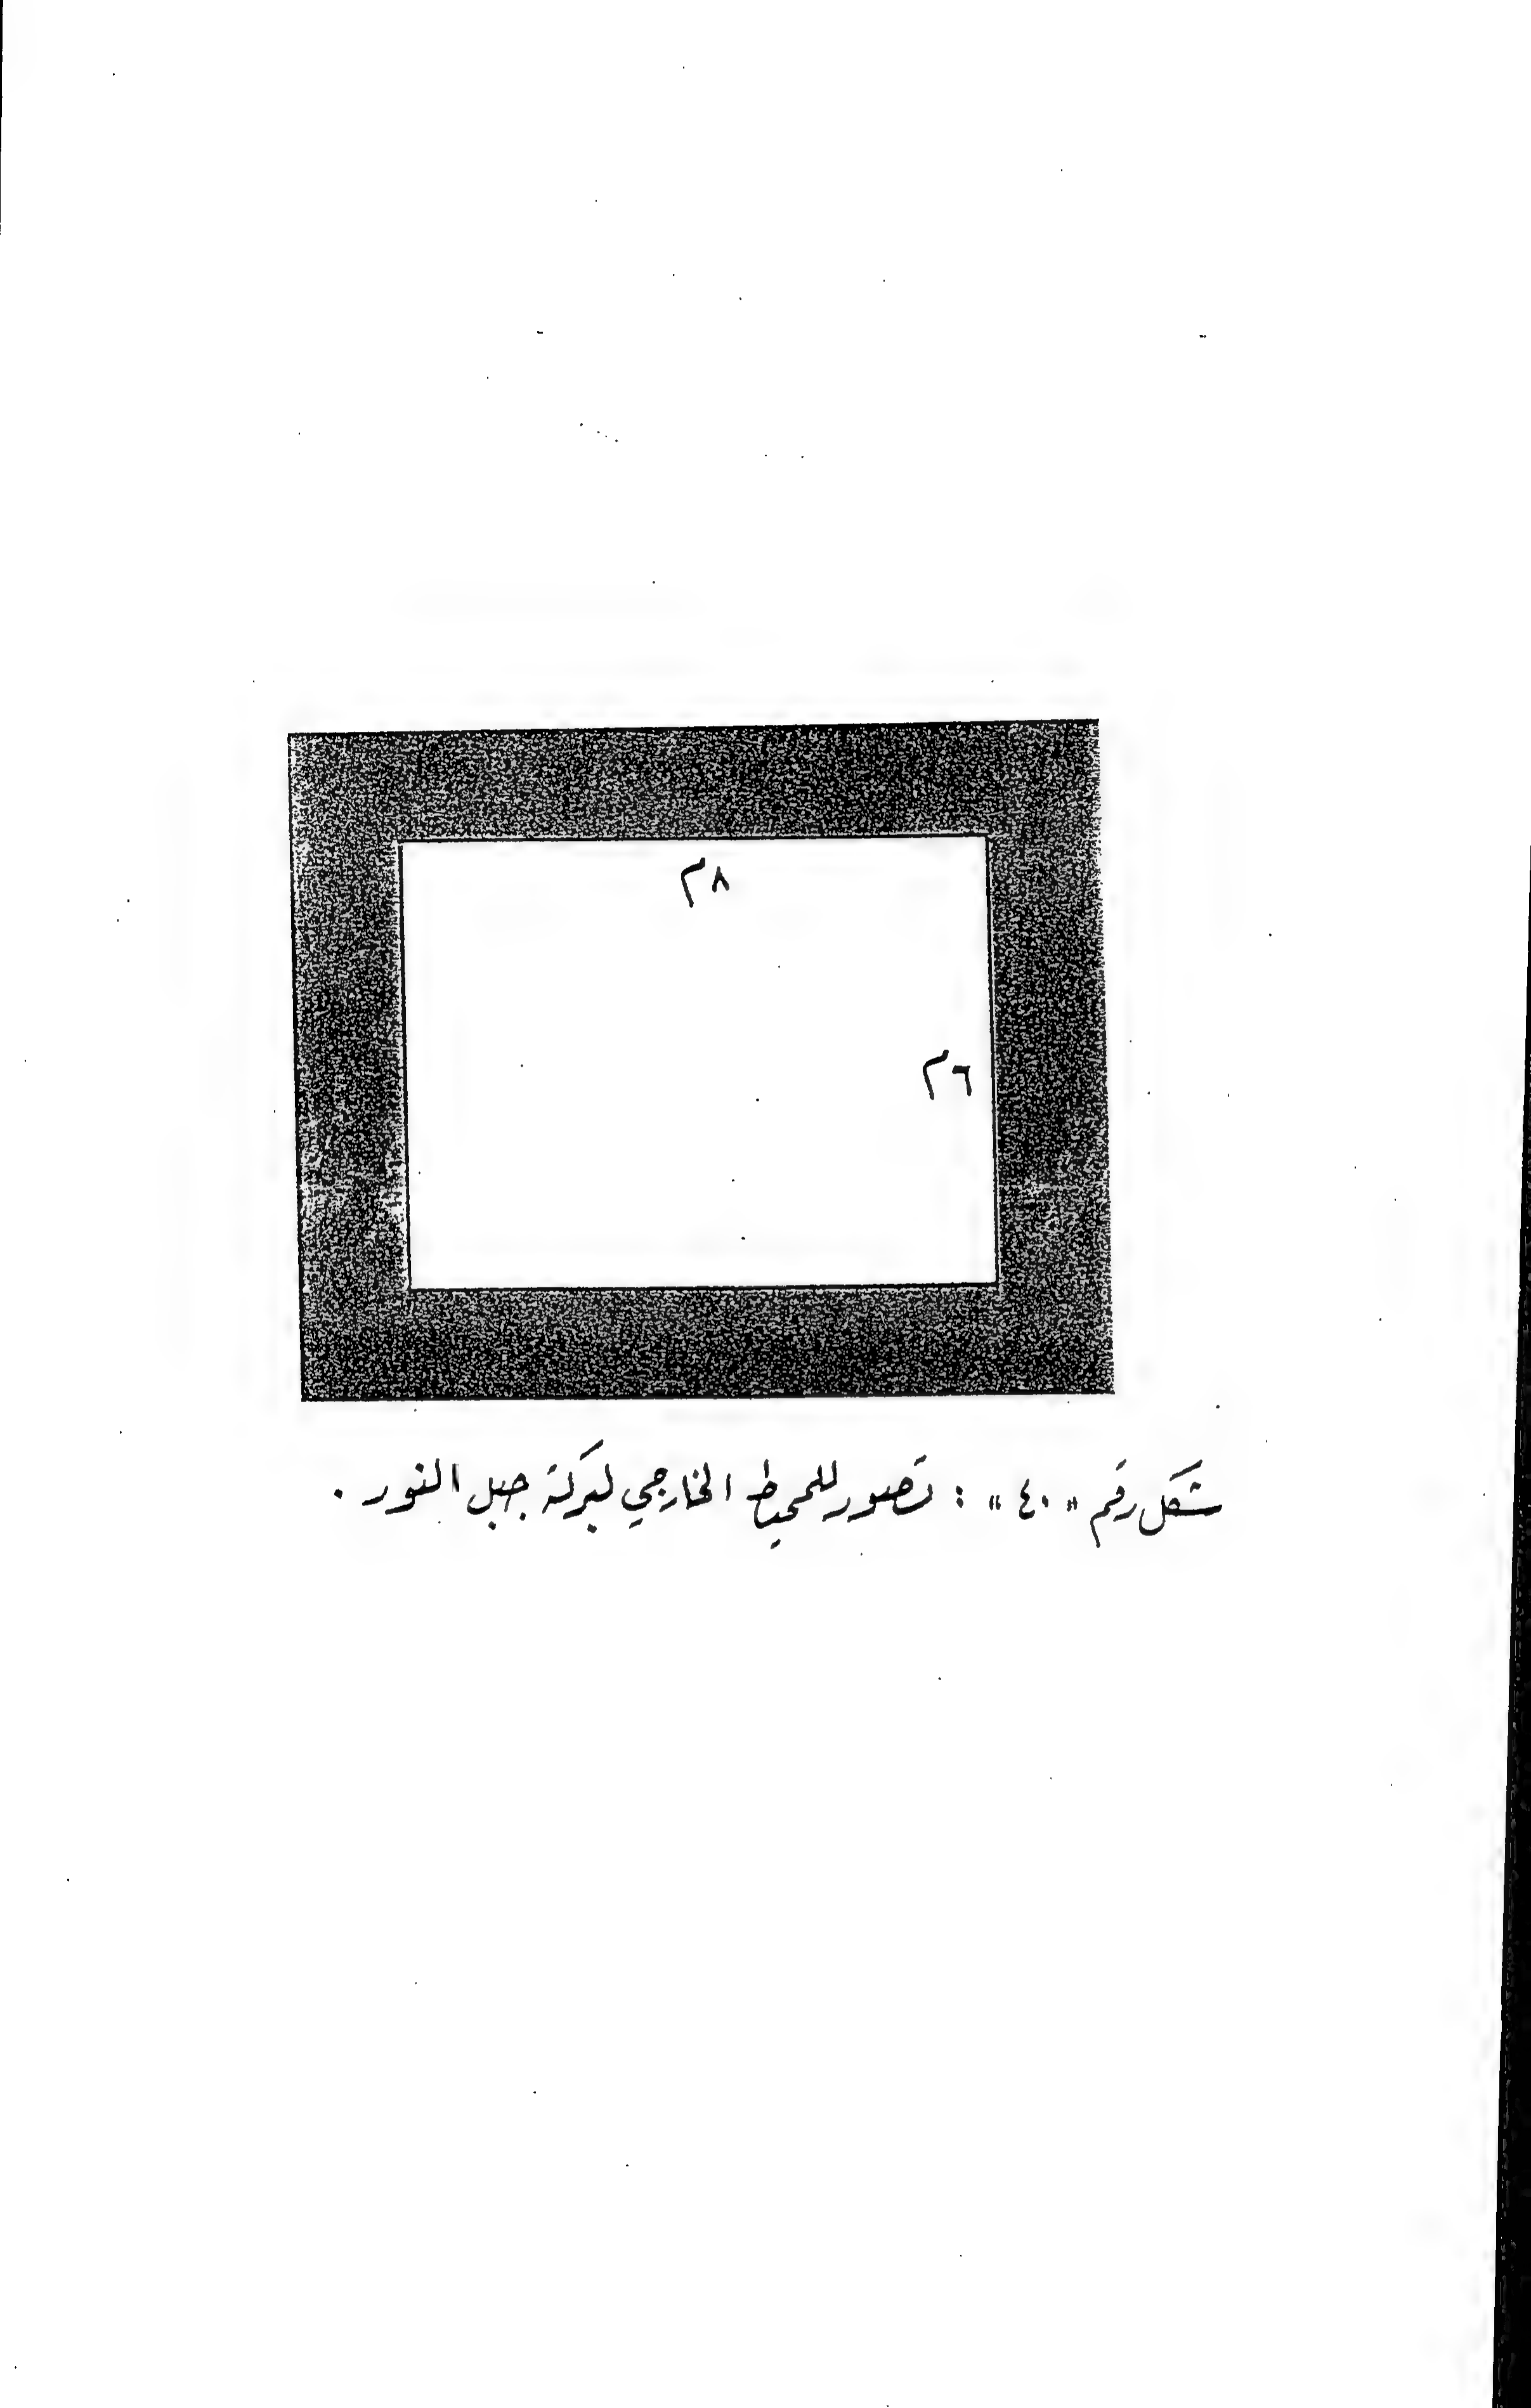 ٨م
٦م
شكل رقم "٤٠" : تصور للمحيط الخارجي لبركة جبل النور .